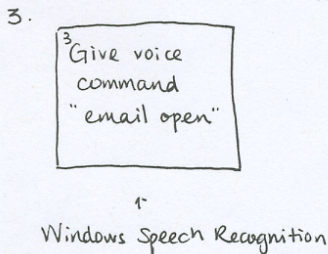 3.
3
Give voice
command
"email open"
Windows Speech Recognition